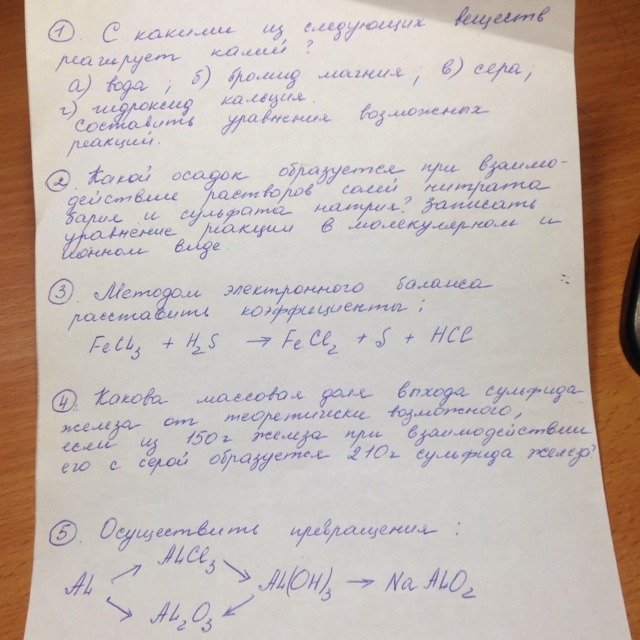 1. С какими из следующих веществ
реагирует калий?
а) вода; б) бромид магния; в) сера;
г) гидроксид кальция.
Составить уравнения возможных
реакций.
2. Какой осадок образуется при взаимо-
действие растворов солей нитрата
бария и сульфата натрия? Записать
уравнение реакции в молекулярном и
ионном виде.
3. Методом электронного баланса
расставить коэффициенты:
FeCl₃ + H₂S → FeCl₂ + S + HCl
4. Какова массовая доля выхода сульфида
железа от теоретически возможного,
если из 150г железа при взаимодействии
его с серой образуется 210г сульфида железа?
5. Осуществить превращения:
AlCl₃
Al → Al(OH)₃ → NaAlO₂
Al₂O₃